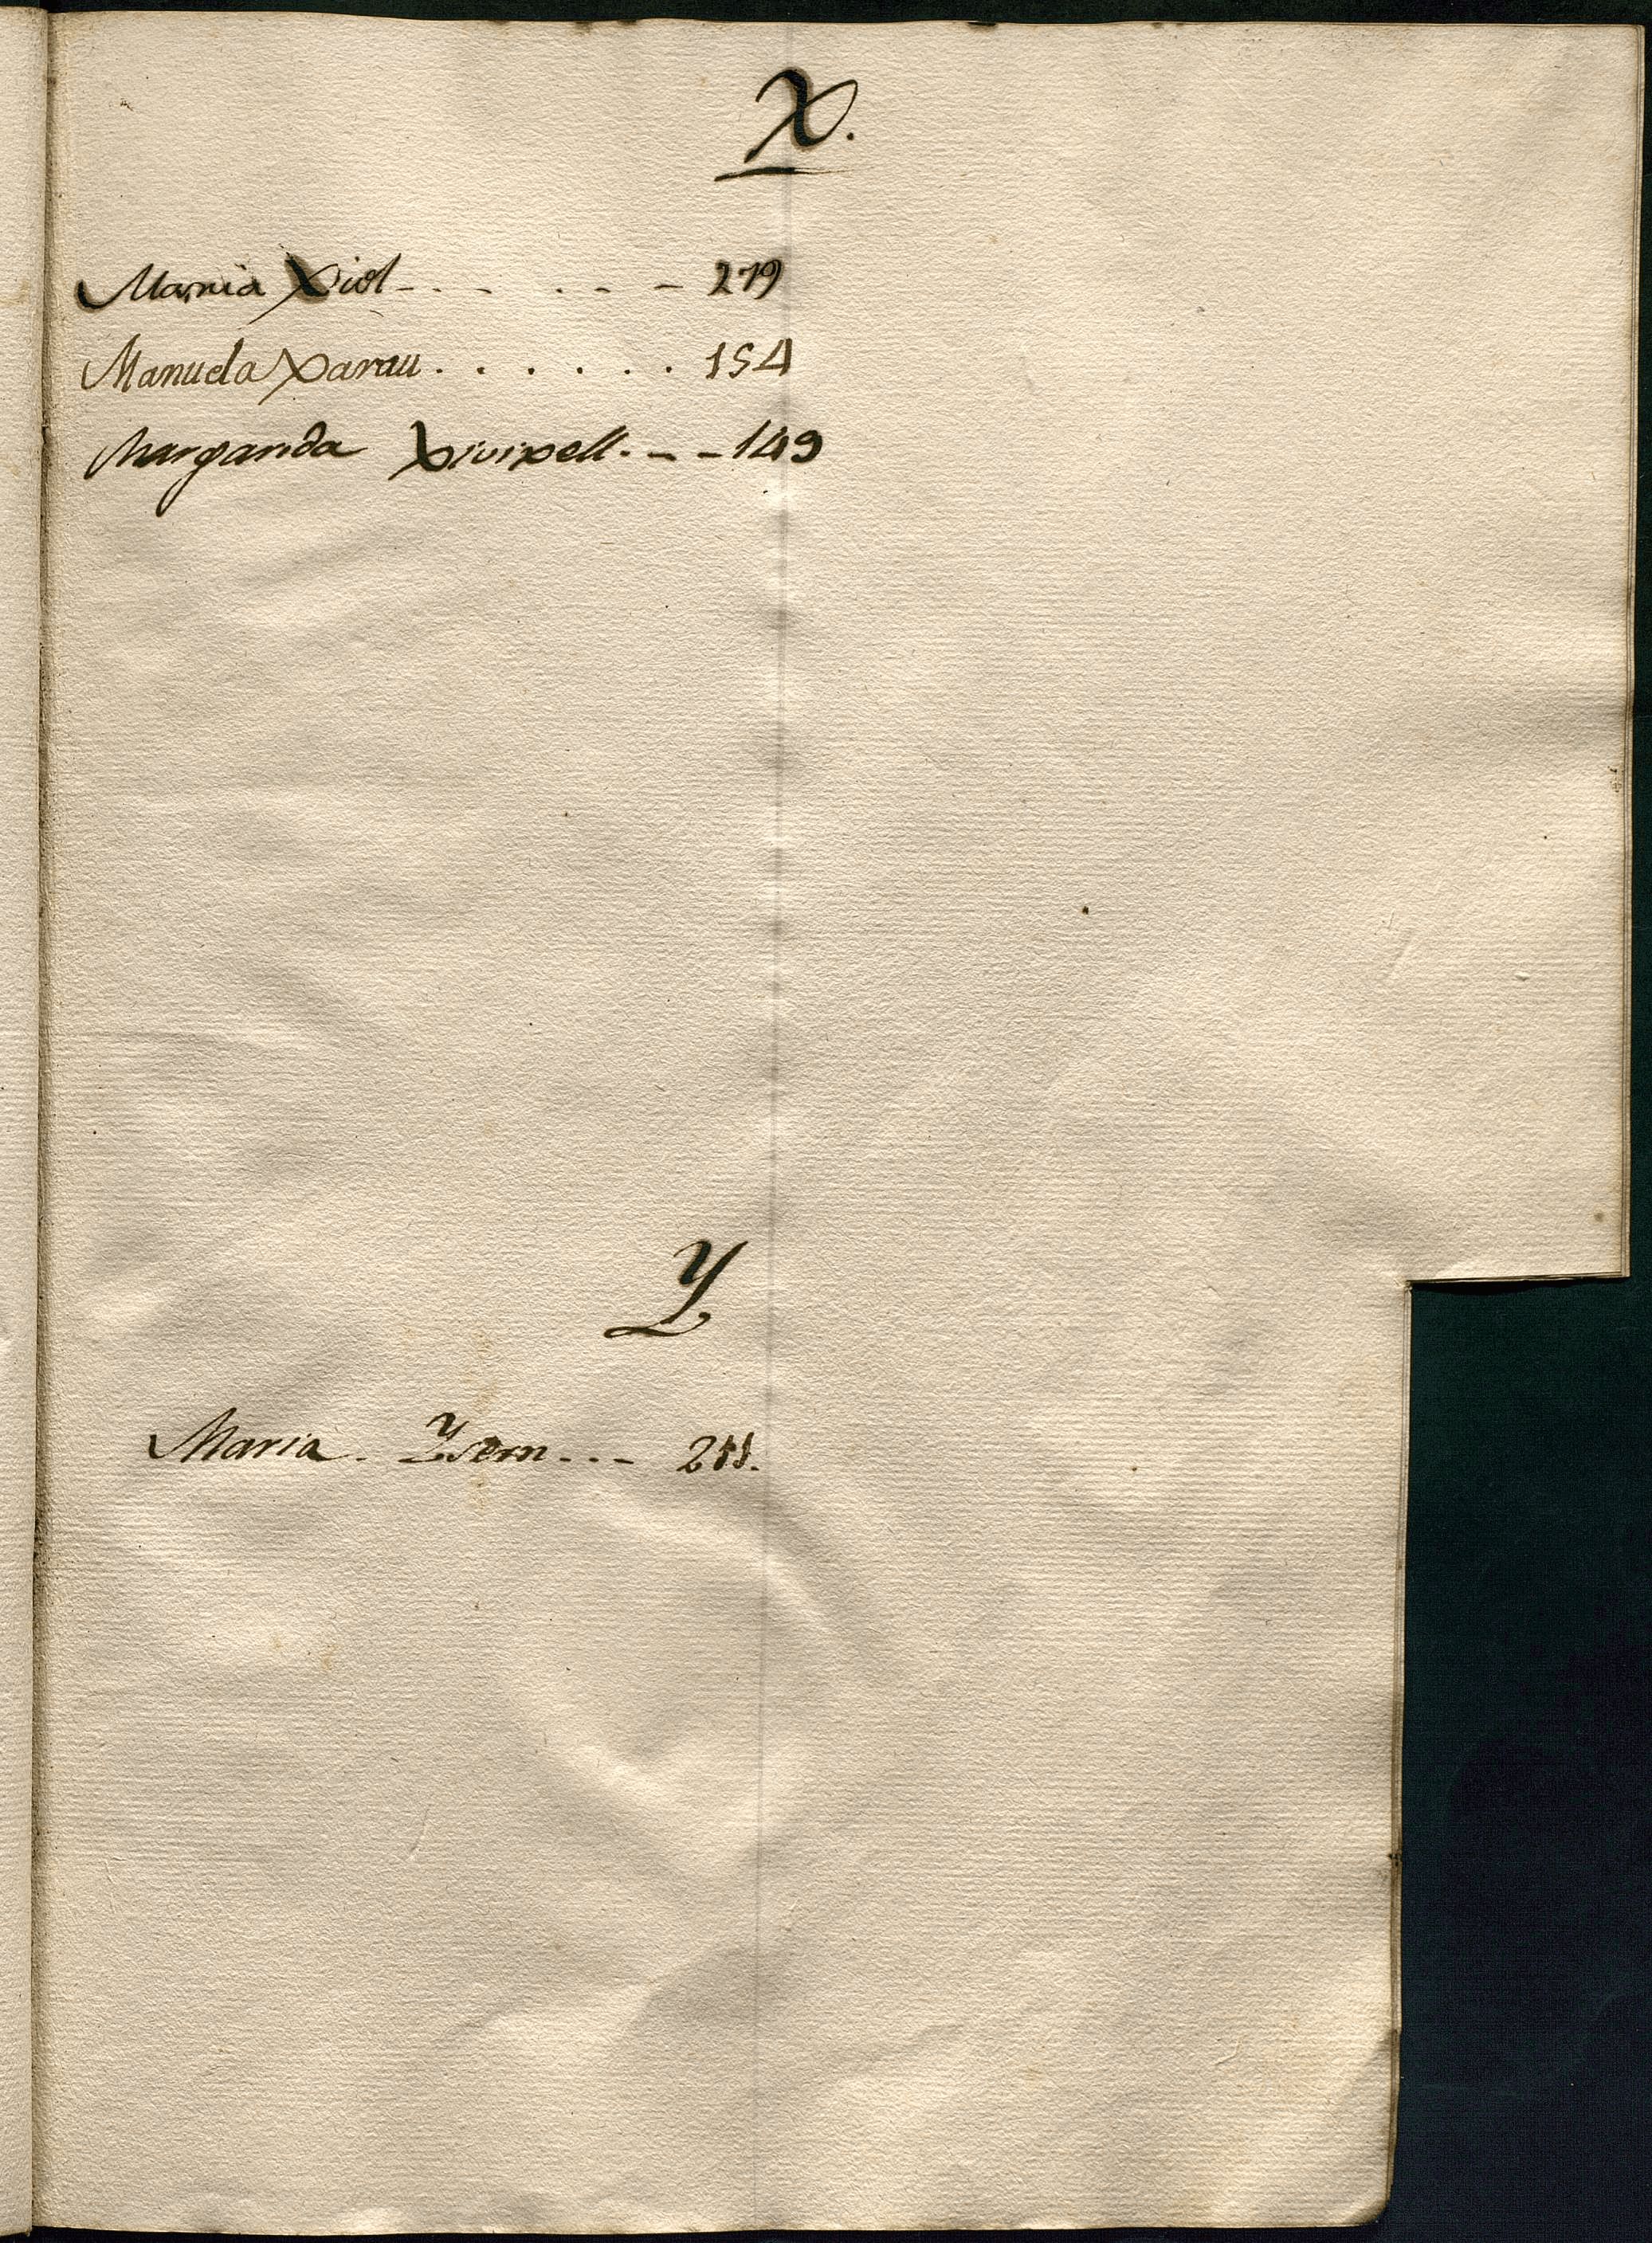 X.
Maria Xiol - . . - . . - - 279
Manuela Xarau . . . . . . 154
Margarida Xivixell. - - 149
Y
Maria. Ysern . . . - 211.